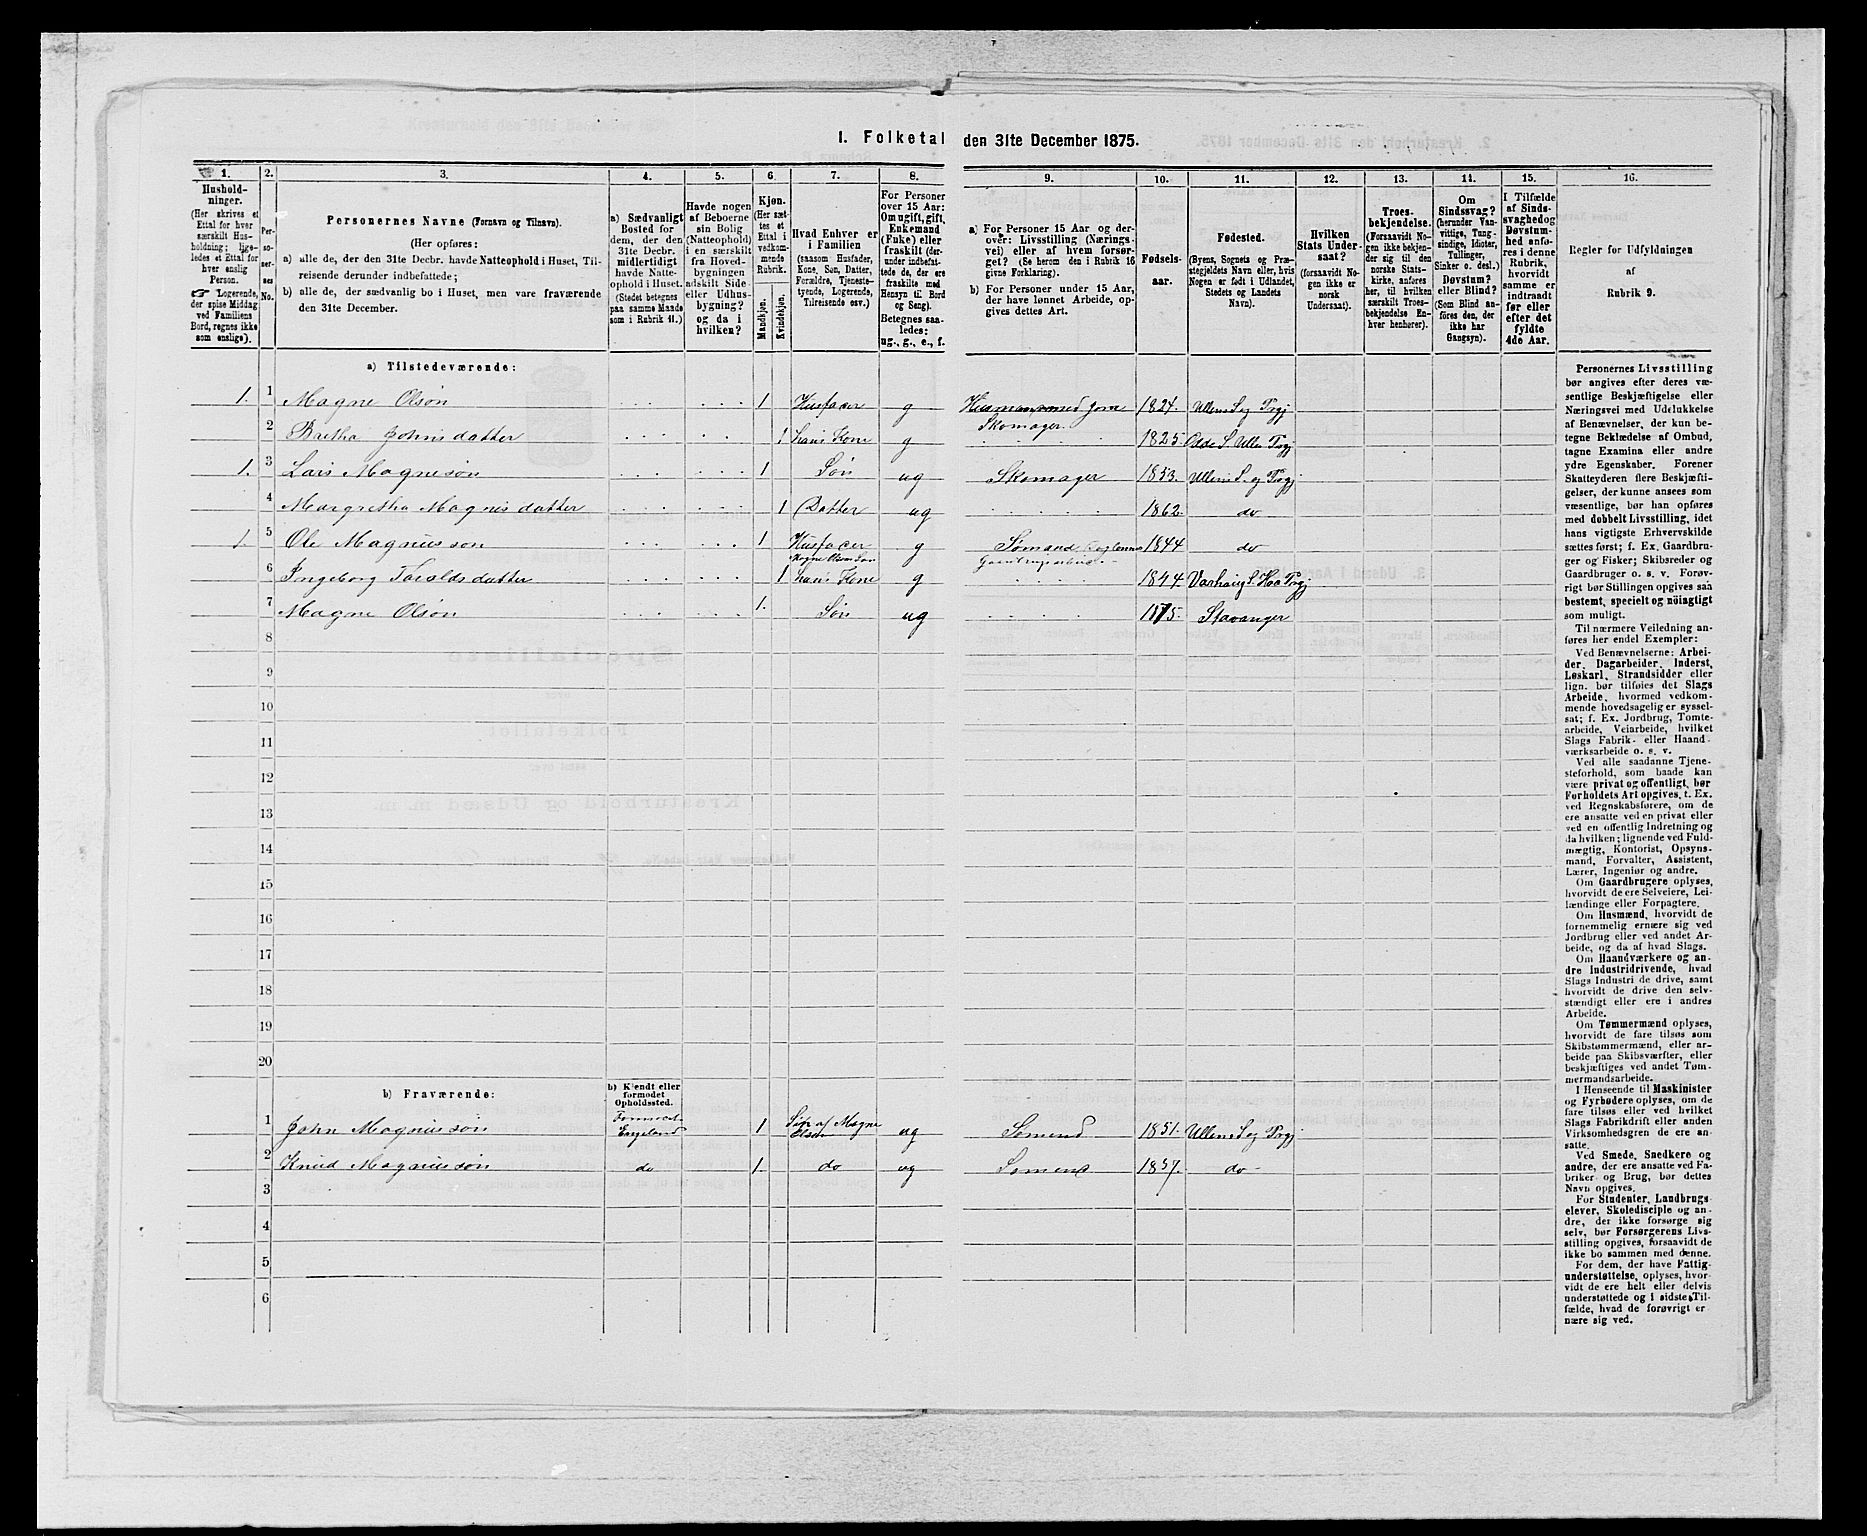 I. Folketal den 31te December 1875.
1. 2. 3. 4. 5. 6. 7. 8. 9. 10. 11. 12. 13. 14. 15. 16.
Hushold-
ninger.
(Her skrives et
Ettal for hver
særskilt Hus-
holdning; lige-
ledes et Ettal for
hver enslig
Person.
Logerende,
der spise Middag
ved Familiens
Bord, regnes ikke
som enslige).
Per-
so-
ner-
nes
No.
Personernes Navne (Fornavn og Tilnavn).
(Her opføres:
a) alle de, der den 31te Decbr. havde Natteophold i Huset, Til-
reisende derunder indbefattede;
b) alle de, der sædvanlig bo i Huset, men vare fraværende
den 31te December.
a) Sædvanligt
Bosted for
dem, der den
31te Decbr.
midlertidigt
havde Natte-
ophold i Huset.
(Stedet betegnes
paa samme Maade
som i Rubrik 11.)
Havde nogen
af Beboerne
sin Bolig
(Natteophold)
i en særskilt
fra Hoved-
bygningen
adskilt Side-
eller Udhus-
bygning?
og da i
hvilken?
Kjøn.
(Her sæt-
tes et
Ettal i
vedkom-
mende
Rubrik.
Mandkjøn.
Kvindekjøn.
Hvad Enhver er
i Familien
(saasom Husfader,
Kone, Søn, Datter,
Forældre, Tjeneste-
tyende, Logerende,
Tilreisende osv.)
For Personer
over 15 Aar:
Om ugift, gift,
Enkemand
(Enke) eller
fraskilt (der-
under indbefat-
tede de, der ere
fraskilte med
Hensyn til Bord
og Seng).
Betegnes saa-
ledes:
ug., g., e., f.
a) For Personer 15 Aar og der-
over: Livsstilling (Nærings-
vei) eller af hvem forsør-
get? (Se herom den i Rubrik 16
givne Forklaring).
b) For Personer under 15 Aar,
der have lønnet Arbeide, op-
gives dettes Art.
Fødsels-
aar.
Fødested.
(Byens, Sognets og Præ-
stegjeldets Navn eller, hvis
Nogen er født i Udlandet,
Stedets og Landets
Navn).
Hvilken
Stats Under-
saat?
(forsaavidt No-
gen ikke er
norsk
Undersaat).
Troes-
bekjendelse.
(Forsaavidt No-
gen ikke bekjen-
der sig til den
norske Stats-
kirke, anføres
her, til hvilken
særskilt Troes-
bekjendelse En-
hver henhører).
Om
Sindssvag?
(herunder Van-
vittige, Tung-
sindige, Idioter,
Tullinger,
Sinker o. desl.)
Døvstum?
eller Blind?
(Som Blind an-
føres den, der
ikke har
Gangsyn).
I Tilfælde
af Sinds-
svaghed og
Døvstum-
hed anfø-
res i denne
Rubrik,
hvorvidt
samme er
indtraadt
før eller
efter det
fyldte
4de Aar.
Regler for Udfyldningen
af
Rubrik 9.
a) Tilstedeværende:
1. 1 Magne Olsøn 1 Husfader g Husmand med Jord Skomager 1824. Ullens S. og Prgj
2 Bretha Johnsdatter 1 hans Kone g 1825 Odde S. Ullens Prgj
1. 3 Lars Magnesøn 1 Søn ug Skomager 1853. Ullens S. og Prgj
4 Margretha Magnisdatter 1 Datter ug 1862. do
1. 5 Ole Magnussøn 1 Husfader Magne Olsøns Søn g Sømand 1844 do
6 Ingeborg Taraldsdatter 1 hans Kone g 1844. Varhaug S. Haa Prgj
7 Magne Olsøn 1. Søn ug 1875. Stavanger
8
9
10
11
12
13
14
15
16
17
18
19
20
b) Fraværende:
b) Kjendt eller
formodet
Opholdssted.
1 John Magnussøn Formodet Engeland 1 Søn af Magne Olsen ug Sømend 1851. Ullens S. og Prgj
2 Knud Magnussøn do 1. do ug Sømend 1857. do
3
4
5
6
Personernes Livsstilling
bør angives efter deres væ-
sentlige Beskjæftigelse eller
Næringsvei med Udelukkelse
af Benævnelser, der kun be-
tegne Beklædelse af Ombud,
tagne Examina eller andre
ydre Egenskaber. Forener
Skatteyderen flere Beskjæfti-
gelser, der kunne ansees som
væsentlige, bør han opføres
med dobbelt Livsstilling, idet
hans vigtigste Erhvervskilde
sættes først; f. Ex. Gaardbru-
ger og Fisker; Skibsreder og
Gaardbruger o. s. v. Forøv-
rigt bør Stillingen opgives saa
bestemt, specielt og nøiagtigt
som muligt.
Til nærmere Veiledning an-
føres her endel Exempler:
Ved Benævnelserne: Arbei-
der, Dagarbeider, Inderst,
Løskarl, Strandsidder eller
lign. bør tilføies det Slags
Arbeide, hvormed vedkom-
mende hovedsagelig er syssel-
sat; f. Ex. Jordbrug, Tomte-
arbeide, Veiarbeide, hvilket
Slags Fabrik- eller Haand-
værksarbeide o. s. v.
Ved alle saadanne Tjene-
steforhold, som baade kan
være privat og offentligt, bør
Forholdets Art opgives, t. Ex.
ved Regnskabsførere, om de
ere ansatte ved en privat eller
ved en offentlig Indretning og
da hvilken; lignende ved Fuld-
mægtig, Kontorist, Opsyns-
mand, Forvalter, Assistent,
Lærer, Ingeniør og andre.
Om Gaardbrugere oplyses,
hvorvidt de ere Selveiere, Lei-
lændinge eller Forpagtere.
Om Husmænd, hvorvidt de
fornemmelig ernære sig ved
Jordbrug eller ved andet Ar-
beide, og da af hvad Slags.
Om Haandværkere og an-
dre Industridrivende, hvad
Slags Industri de drive, samt
hvorvidt de drive den selv-
stændigt eller ere i andres
Arbeide.
Om Tømmermænd oplyses,
hvorvidt de fare tilsøs som
Skibstømmermænd, eller ar-
beide paa Skibsværfter, eller
beskjæftiges ved andet Tøm-
mermandsarbeide.
I Henseende til Maskinister
og Fyrbødere oplyses, om de
fare tilsøs eller ved hvilket
Slags Fabrikdrift eller anden
Virksomhedsgren de ere an-
satte.
Ved Smede, Snedkere og
andre, der ere ansatte ved Fa-
briker og Brug, bør dettes
Navn opgives.
For Studenter, Landbrugs-
elever, Skoledisciple og an-
dre, der ikke forsørge sig
selv, bør Forsørgerens Livs-
stilling opgives, forsaavidt de
ikke bo sammen med denne.
For dem, der have Fattig-
understøttelse, oplyses, hvor-
vidt de ere helt eller delvis
understøttede og i sidste Til-
fælde, hvad de forøvrigt er-
nære sig ved.